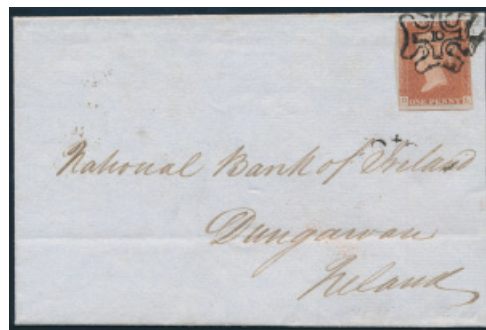 ONE PENNY
National Bank of Ireland
Dungarvan
Ireland